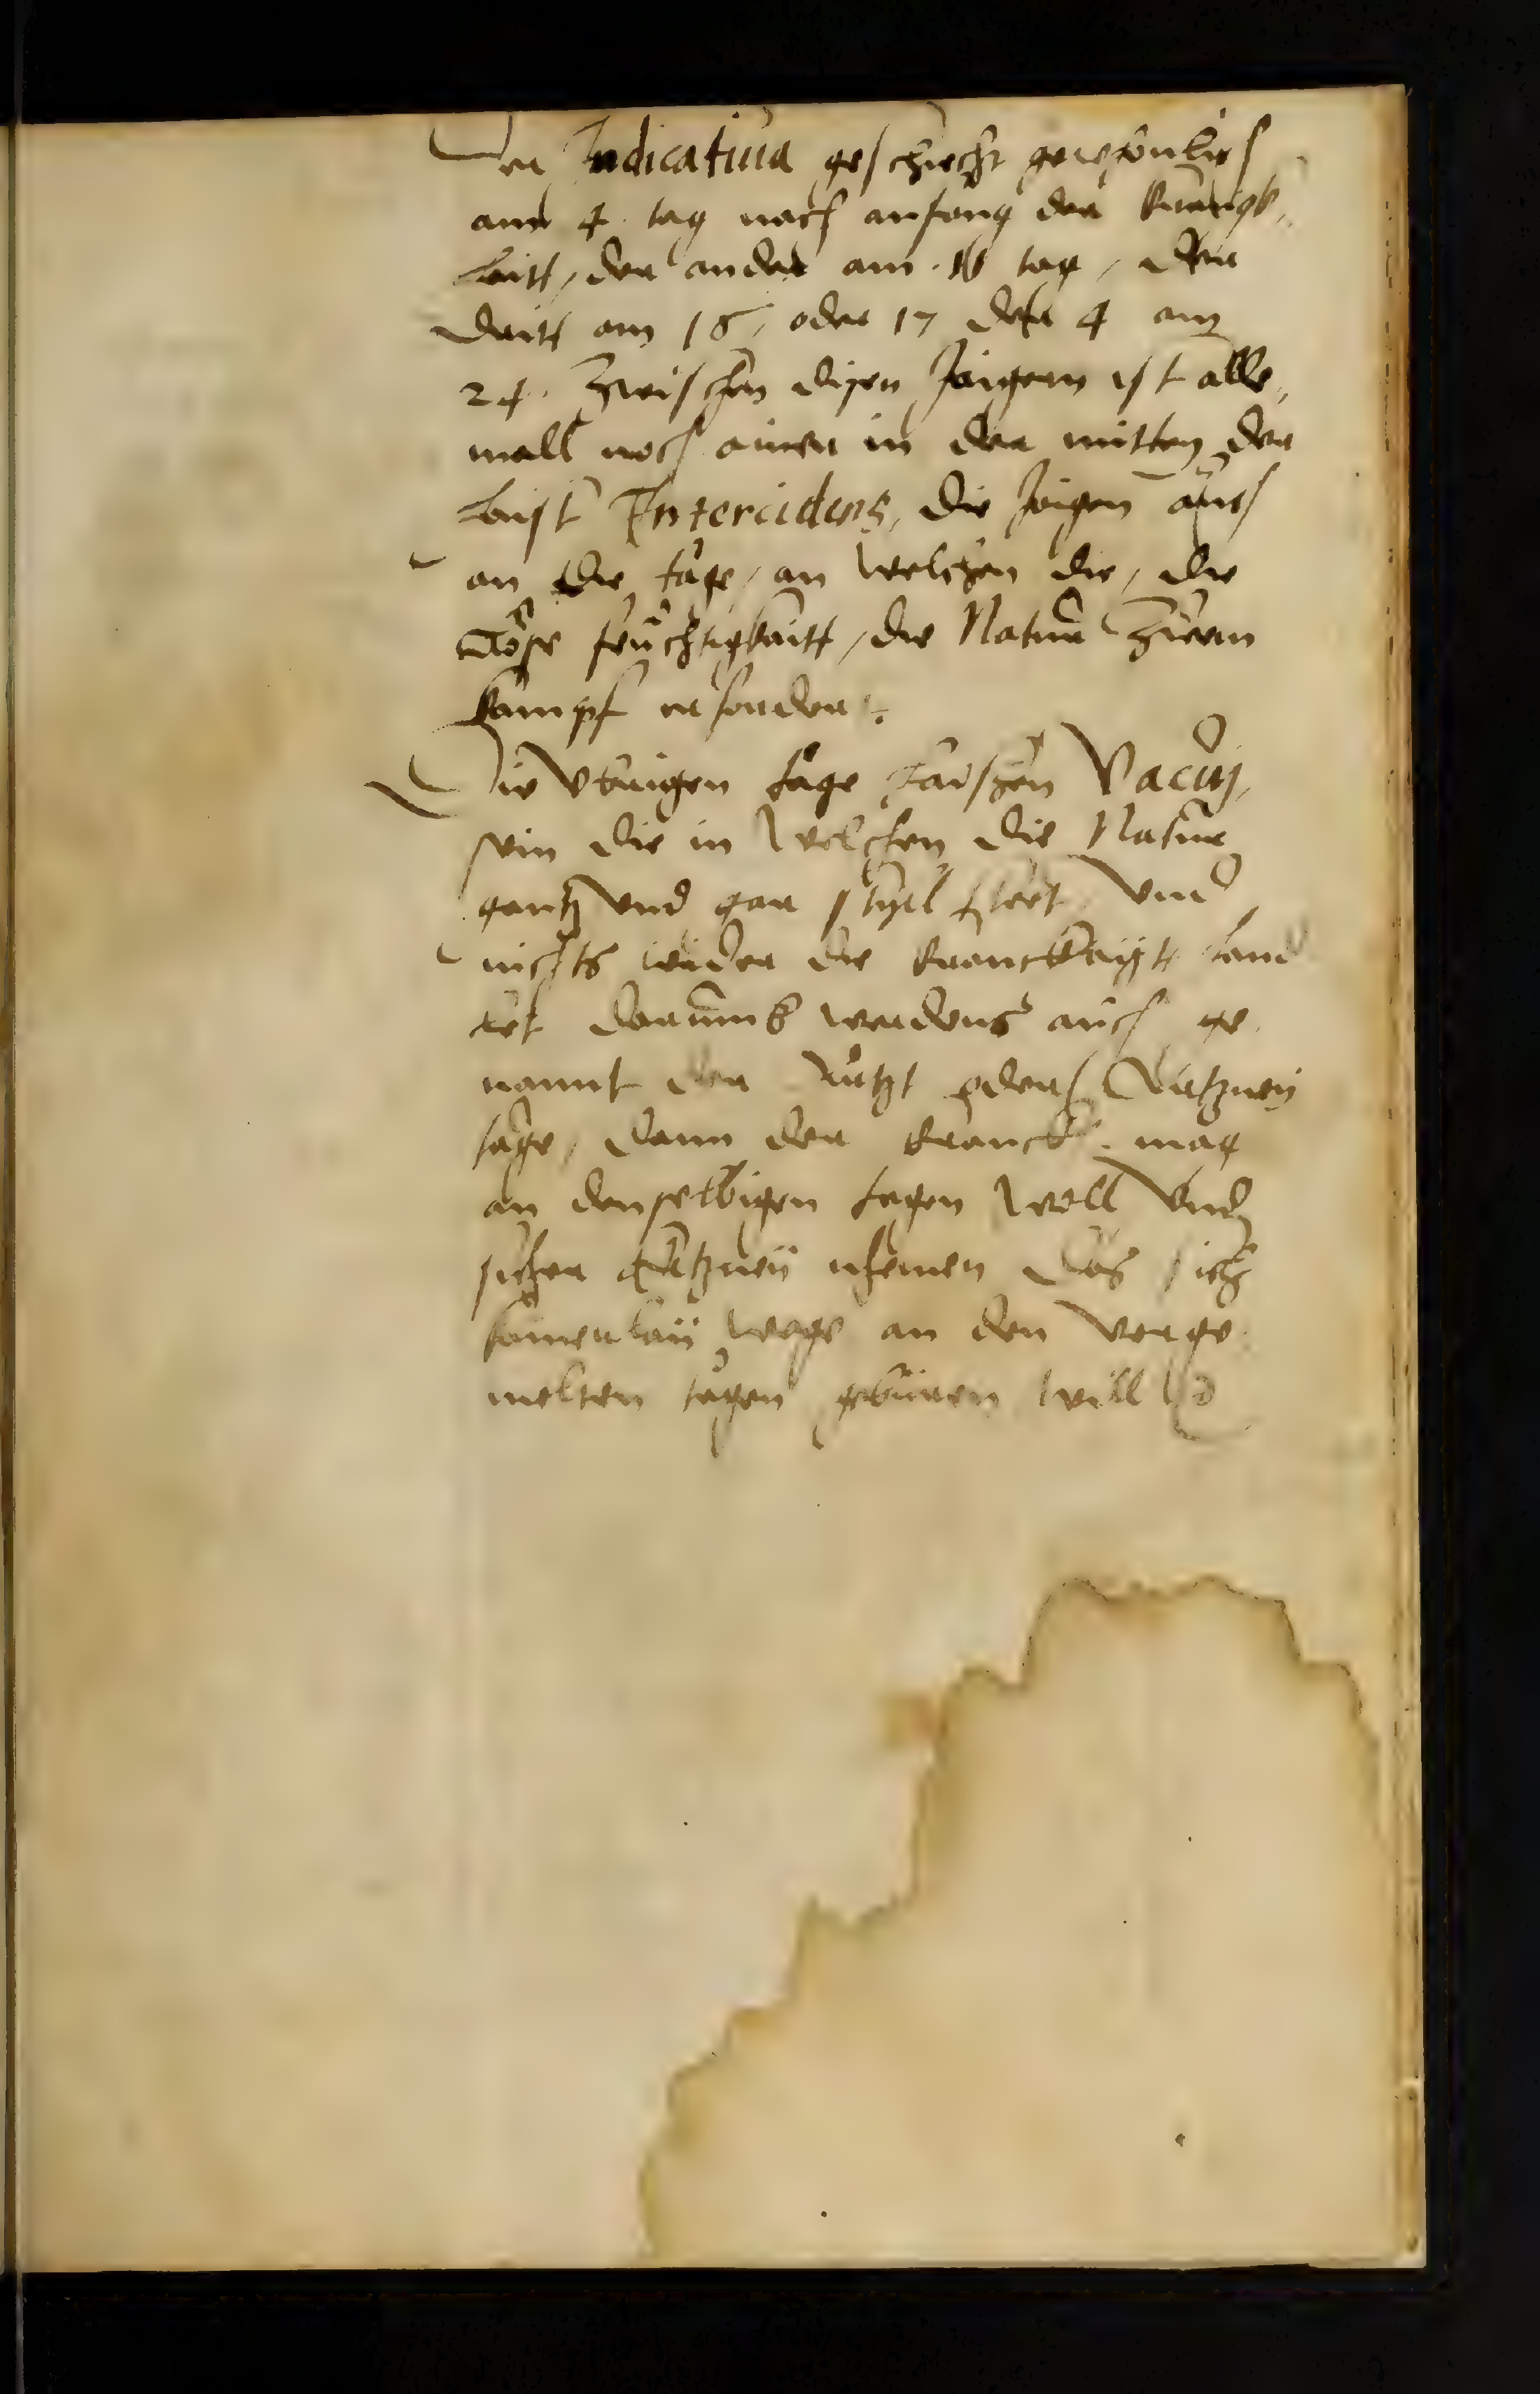 Der Indicatiua geschiecht gewonlich
am 4. tag nach anfang der kranck„
hait, der ander am . tag, der
dritt am 16, oder 17 der 4 am
24. Zwischen disen Zaigern ist alle„
mall noch ainer in der mitten, der
haist Intercidens, die Zaigen auch
an die tage, an welchen die, die
böse feuchtigkaitt, die Natur zum
kampf erfordert.
Die Vbrigen tage haischen Vacuj,
sein die in welchen die Natur
gantz vnd gar styll steet, vnd
nichts wider die kranckhaytt hand
let darumb werdens auch ge
nannt der artzt oder Artzney
tage, dann der kranck mag
an denselbigen tagen woll vnd
sicher Artzneÿ nhemen das sich
kainerlaÿ wege an den vorge
melten tagen gebüren will